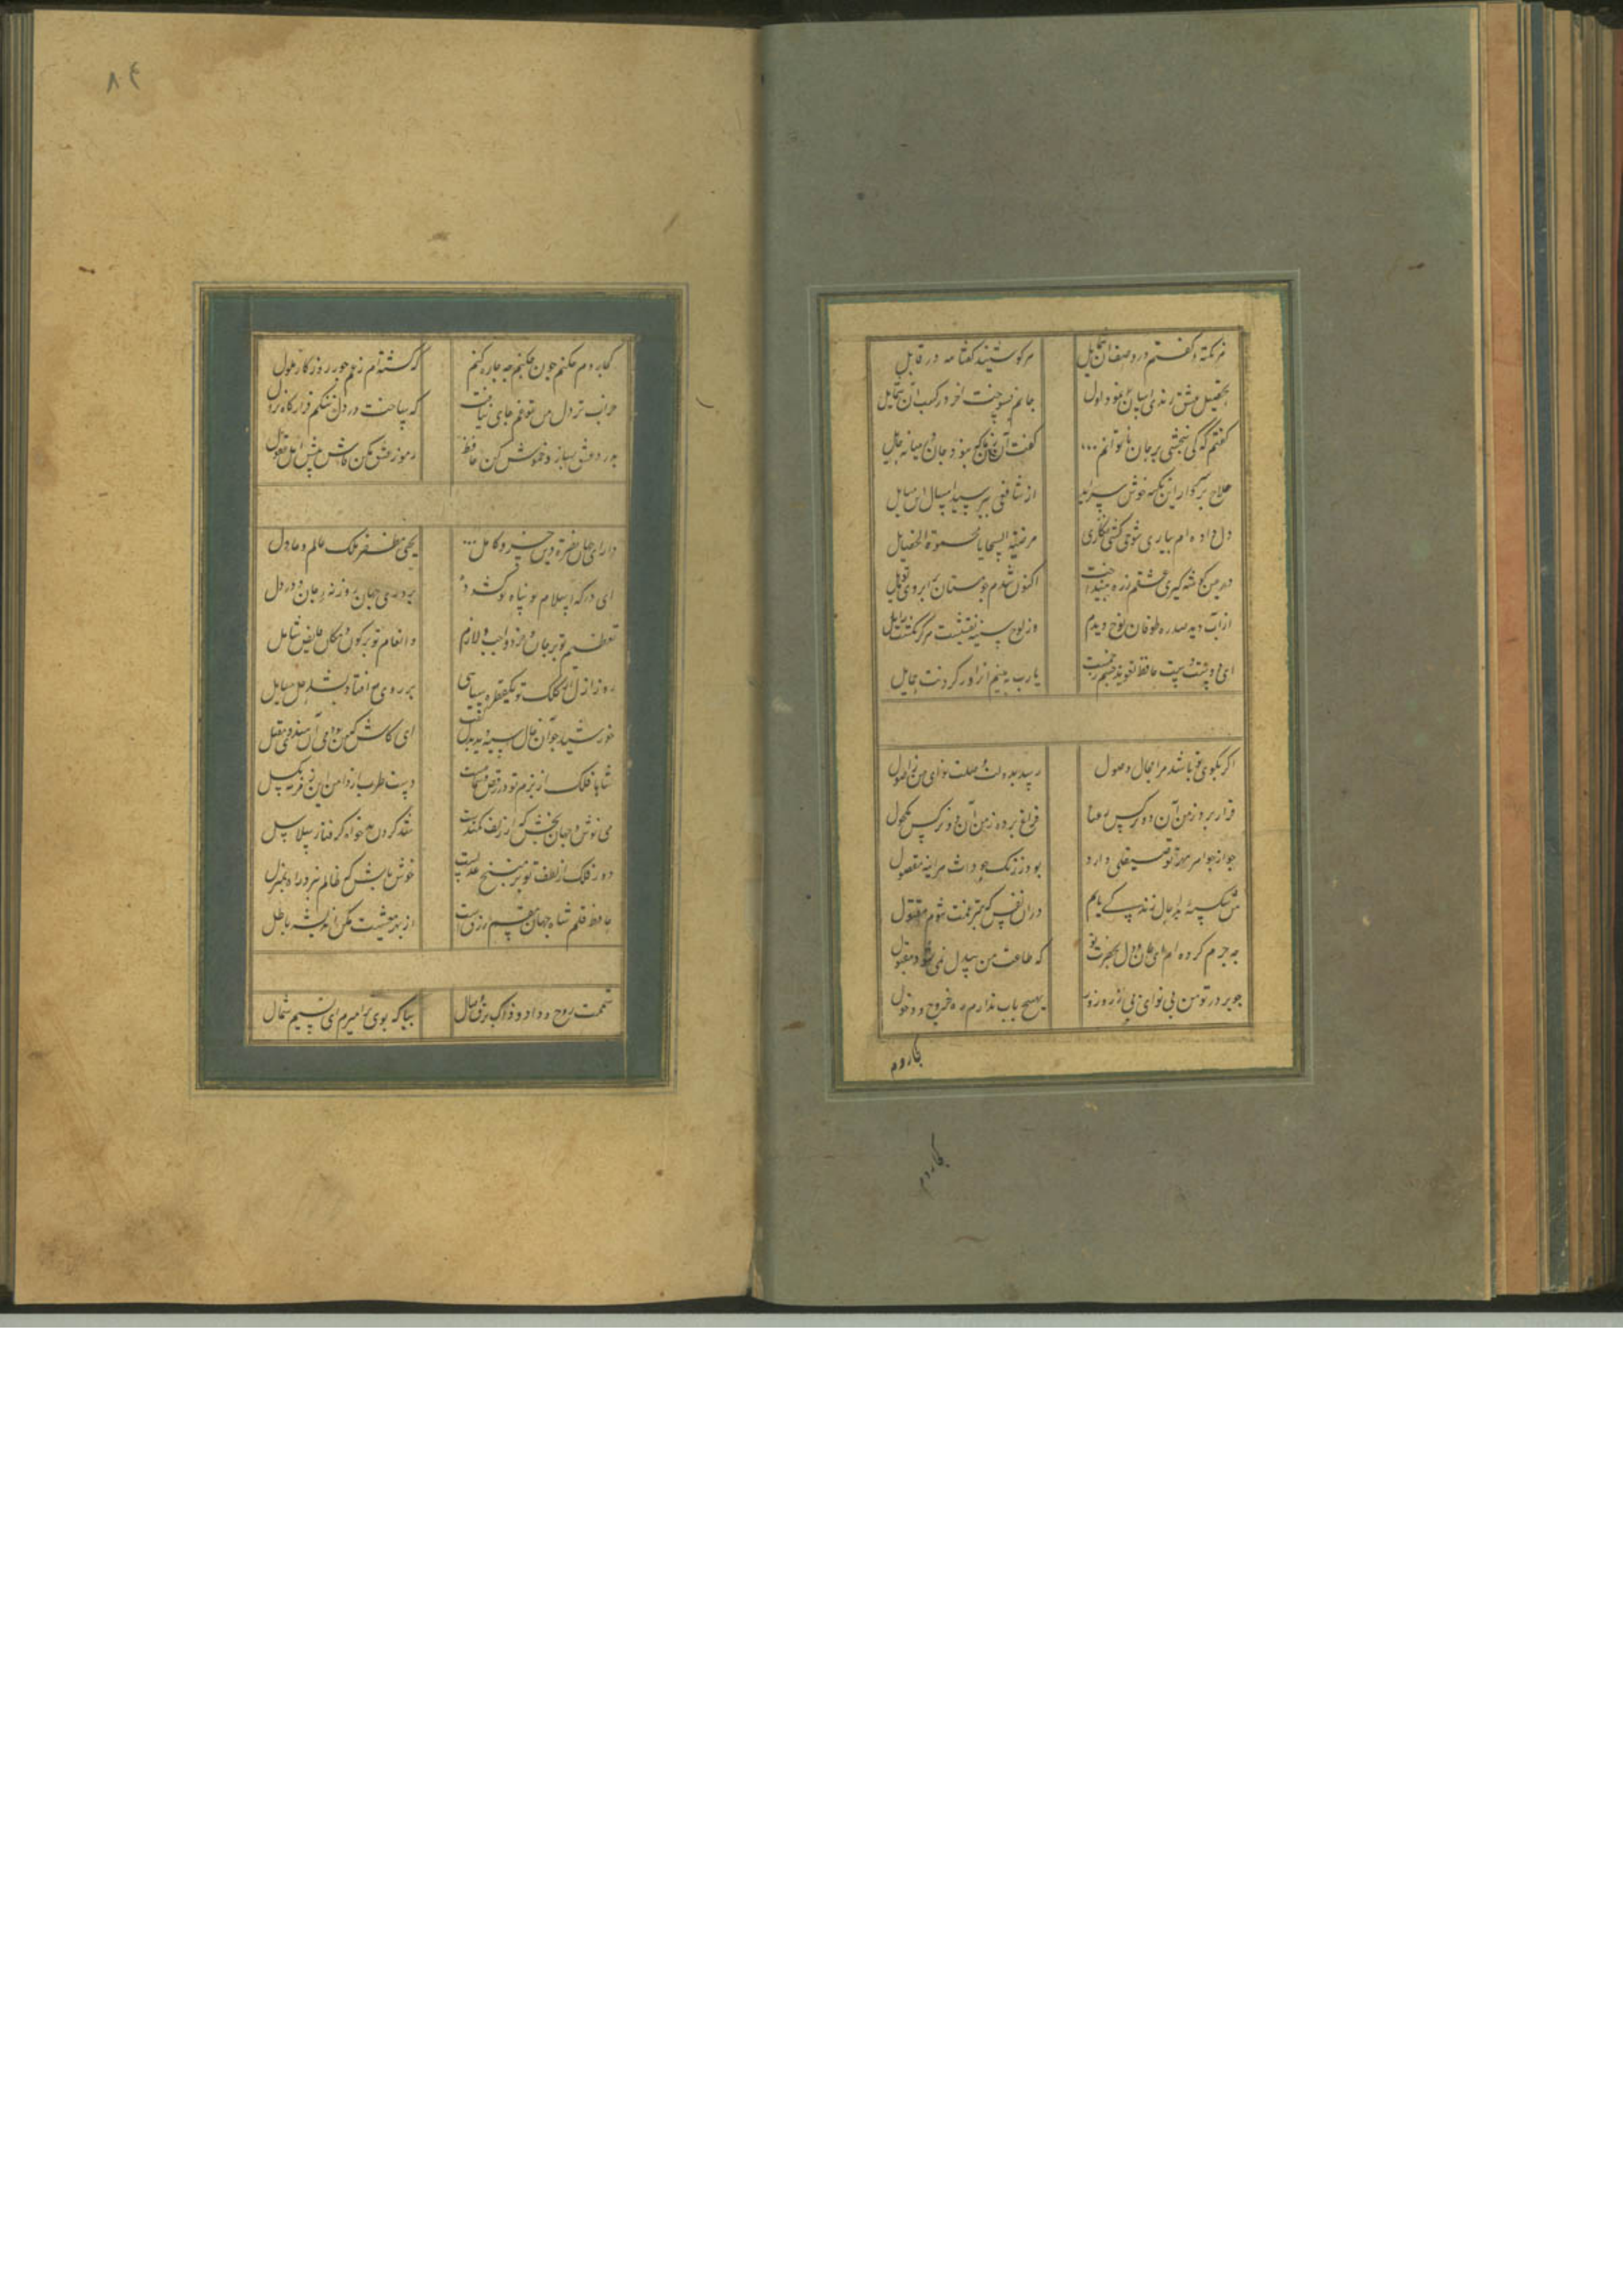 هر نکته که گفتم در وصف آن شمایل
هر کو شنید گفتا لله در قایل
تحصیل عشق رندی آسان نمود اول
جانم بسوخت آخر در کسب آن شمایل
گفتم که کی ببخشی بر جان ناتوانم
گفت آن زمان که نبود جان در میانه حایل
حلاج بر سر دار این نکته خوش سراید
از شافعی مپرسید امثال این مسایل
دل داده‌ام بیاری شوخی کشی نگاری
مرضیة السجایا محمودة الخصایل
در عین گوشه گیری
اکنون شدم بمستان بر ابروی تو مایل
از آب دیده صد ره طوفان نوح دیدم
وز لوح سینه نقشت هرگز نگشت زایل
ای دوست دست حافظ تعویذ چشم زخمست
یارب ببینم آنرا در گردنت حمایل
اگر بکوی تو باشد مرا مجال وصول
رسد بدولت وصلت نوای من باصول
قرار برده ز من آن دو نرگس رعنا
فراغ برده ز من آن دو نرگس مکحول
چو از جواهر مهر تو صیقلی دارد
بود ز زنگ حوادث هر آینه مصقول
من شکسته بدحال زندگی یابم
در آن نفس که به تیغ غمت شوم مقتول
چه جرم کرده‌ام ای جان و دل بحضرت تو
که طاعت من بیدل نمی شود مقبول
چو بر در تو من بی نوای بی زر و زور
بهیچ باب ندارم ره خروج و دخول
کجا روم
کجا روم
۸۴
کجا روم چکنم چون کنم چه چاره کنم
که گشته‌ام ز غم جور روزگار ملول
خرابتر ز دل من غم تو جای نیافت
که ساخت در دل تنگم قرارگاه نزول
بدرد عشق بساز و خموش کن حافظ
رموز عشق مکن فاش پیش اهل عقول
دارای جهان نصرة دین خسرو کامل
یحیی مظفر ملک عالم و عادل
ای درگه اسلام پناه تو گشوده
بر روی جهان روزنه جان و در دل
تعظیم تو بر جان و خرد واجب و لازم
و انعام تو بر کون و مکان فایض شامل
روز ازل از کلک تو یکقطره سیاهی
بر روی مه افتاد که شد حل مسایل
خورشید چو آن خال سیه دید بدل گفت
ای کاش که من بودمی آن هندوی مقبل
شاها فلک از بزم تو در رقص و سماعست
دست طرب از دامن این زمزمه مگسل
می نوش و جهان بخش که از زلف کمندت
شد گردن بدخواه گرفتار سلاسل
دور فلک از لطف تو بر منهج عدلست
خوش باش که ظالم نبرد راه بمنزل
حافظ قلم شاه جهان مقسم رزقست
از بهر معیشت مکن اندیشه باطل
شممت روح وداد و شمت برق وصال
بیا که بوی ترا میرم ای نسیم شمال